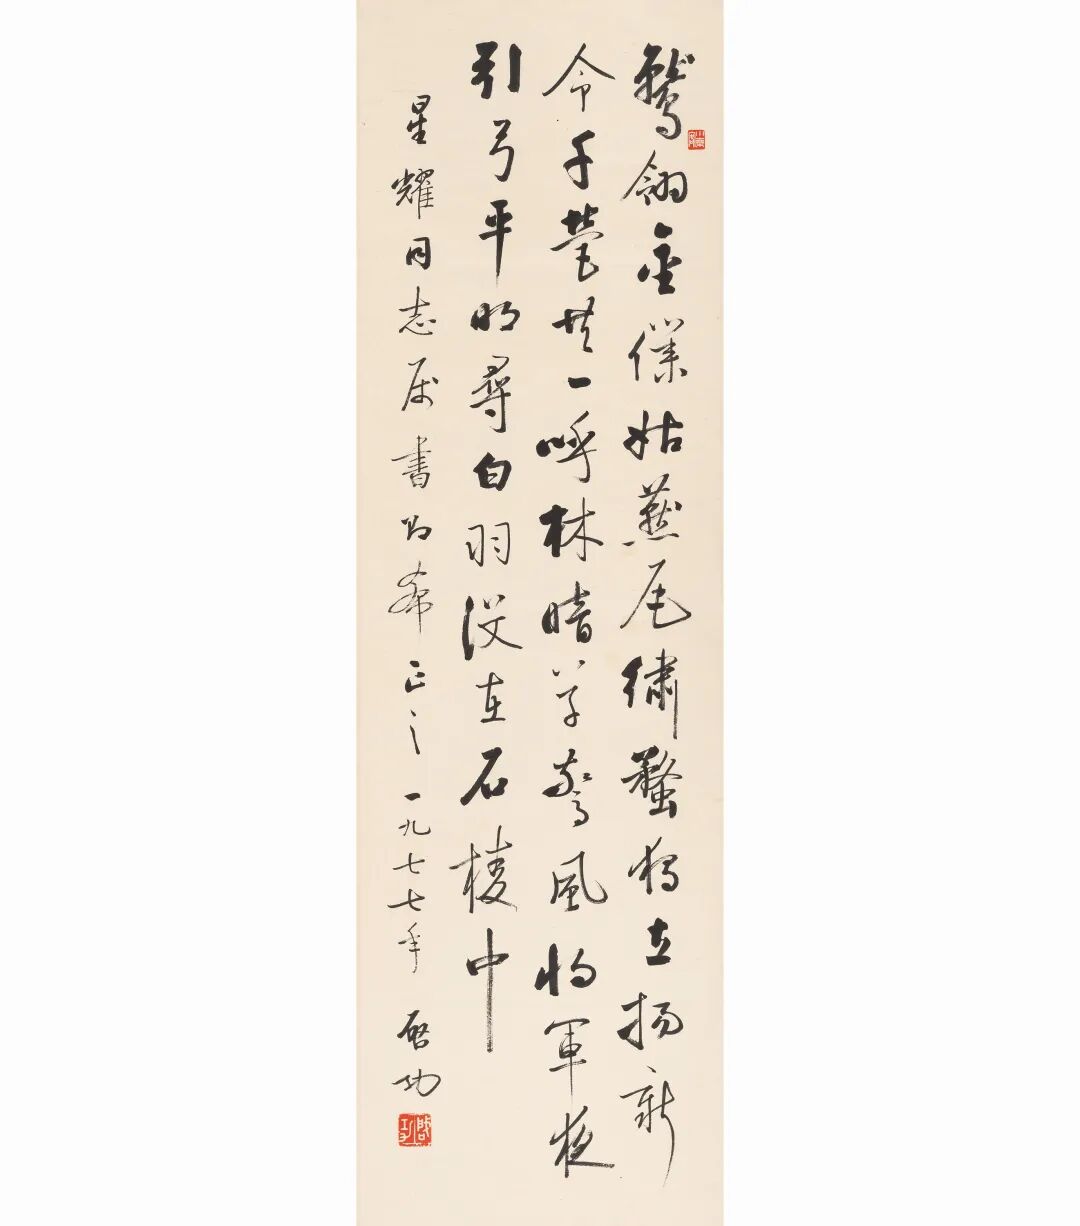 鷲翎金僕姑燕尾繡蝥獨立揚新
令千營共一呼林暗草驚風將軍夜
引弓平明尋白羽沒在石棱中
星耀同志属書即希正之一九七七年 啓功